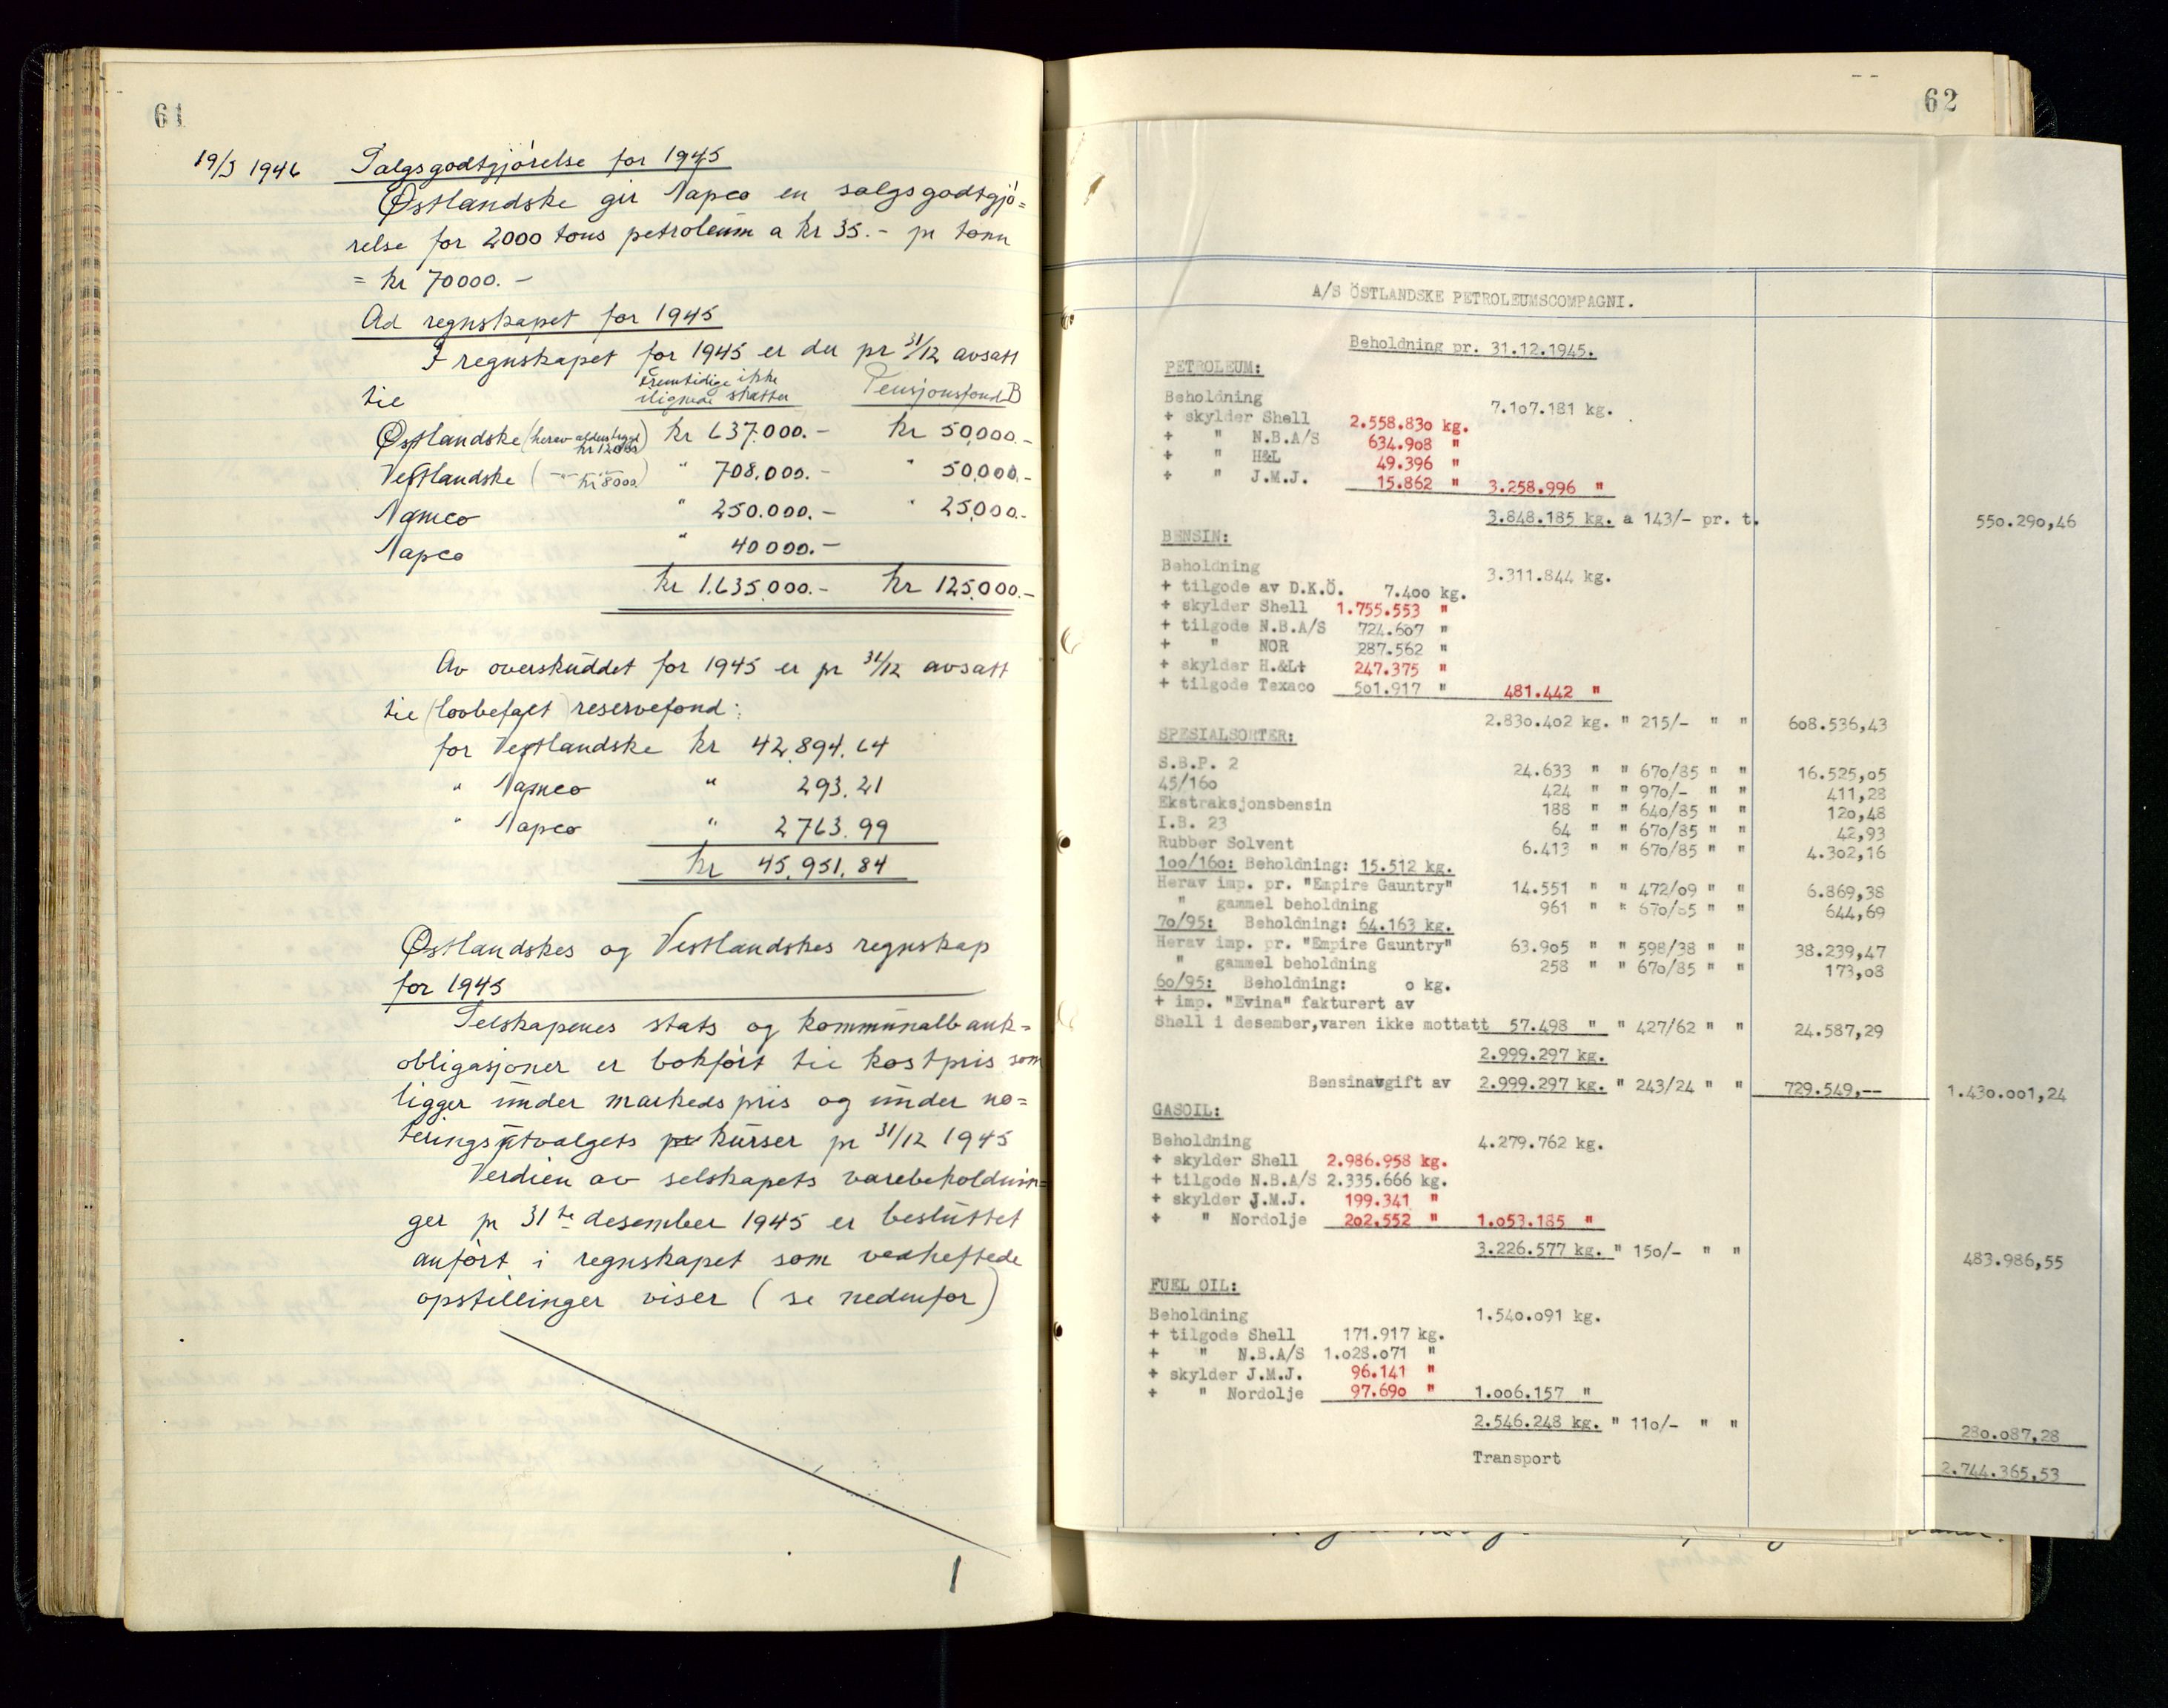 61
19/3 1946 Salgsgodtgjörelse for 1945
Østlandske gir Napco en salgsgodtgjö=
relse for 2000 tons petroleum a kr 35.- pr tonn
= kr 70000.-
Ad regnskapet for 1945
I regnskapet for 1945 er der pr 31/12 avsatt
til Fremtidige ikke ilignede skatter Pensjonsfond B
Østlandske (herav alderstrygd kr 12000) kr 637.000.- kr 50.000.-
Vestlandske ( —"— kr 8000) " 708.000.- " 50.000.-
Namco " 250.000.- " 25.000.-
Napco " 40000.-
kr 1.635.000.- kr 125.000.-
Av overskuddet for 1945 er pr 31/12 avsatt
til (lovbefalt) reservefond:
for Vestlandske kr 42.894.64
" Namco " 293.21
" Napco " 2763.99
kr 45.951.84
Østlandskes og Vestlandskes regnskap
for 1945
Selskapenes stats og kommunalbank=
obligasjoner er bokført til kostpris som
ligger under markedspris og under no=
teringsutvalgets kurser pr 31/12 1945
Verdien av selskapets varebeholdnin=
ger pr 31te desember 1945 er besluttet
anført i regnskapet som vedheftede
opstillinger viser (se nedenfor)
62
A/S ÖSTLANDSKE PETROLEUMSCOMPAGNI.
Beholdning pr. 31.12.1945.
PETROLEUM:
Beholdning 7.107.181 kg.
+ skylder Shell 2.558.830 kg.
+ " N.B.A/S 634.908 "
+ " H&L 49.396 "
+ " J.M.J. 15.862 " 3.258.996 "
3.848.185 kg. a 143/- pr. t. 550.290,46
BENSIN:
Beholdning 3.311.844 kg.
+ tilgode av D.K.Ö. 7.400 kg.
+ skylder Shell 1.755.553 "
+ tilgode N.B.A/S 724.607 "
+ " NOR 287.562 "
+ skylder H.&L+ 247.375 "
+ tilgode Texaco 501.917 " 481.442 "
2.830.402 kg. " 215/- " " 608.536,43
SPESIALSORTER:
S.B.P. 2 24.633 " " 670/85 " " 16.525,05
45/160 424 " " 970/- " " 411,28
Ekstraksjonsbensin 188 " " 640/85 " " 120,48
I.B. 23 64 " " 670/85 " " 42,93
Rubber Solvent 6.413 " " 670/85 " " 4.302,16
100/160: Beholdning: 15.512 kg.
Herav imp. pr. "Empire Gauntry" 14.551 " " 472/09 " " 6.869,38
" gammel beholdning 961 " " 670/85 " " 644,69
70/95: Beholdning: 64.163 kg.
Herav imp. pr. "Empire Gauntry" 63.905 " " 598/38 " " 38.239,47
" gammel beholdning 258 " " 670/85 " " 173,08
60/95: Beholdning: 0 kg.
+ imp. "Evina" fakturert av
Shell i desember,varen ikke mottatt 57.498 " " 427/62 " " 24.587,29
2.999.297 kg.
Bensinavgift av 2.999.297 kg. " 243/24 " " 729.549,-- 1.430.001,24
GASOIL:
Beholdning 4.279.762 kg.
+ skylder Shell 2.986.958 kg.
+ tilgode N.B.A/S 2.335.666 kg.
+ skylder J.M.J. 199.341 "
+ " Nordolje 202.552 " 1.053.185 "
3.226.577 kg. " 150/- " " 483.986,55
FUEL OIL:
Beholdning 1.540.091 kg.
+ tilgode Shell 171.917 kg.
+ " N.B.A/S 1.028.071 "
+ skylder J.M.J. 96.141 "
+ " Nordolje 97.690 " 1.006.157 "
2.546.248 kg. " 110/- " " 280.087,28
Transport 2.744.365,53